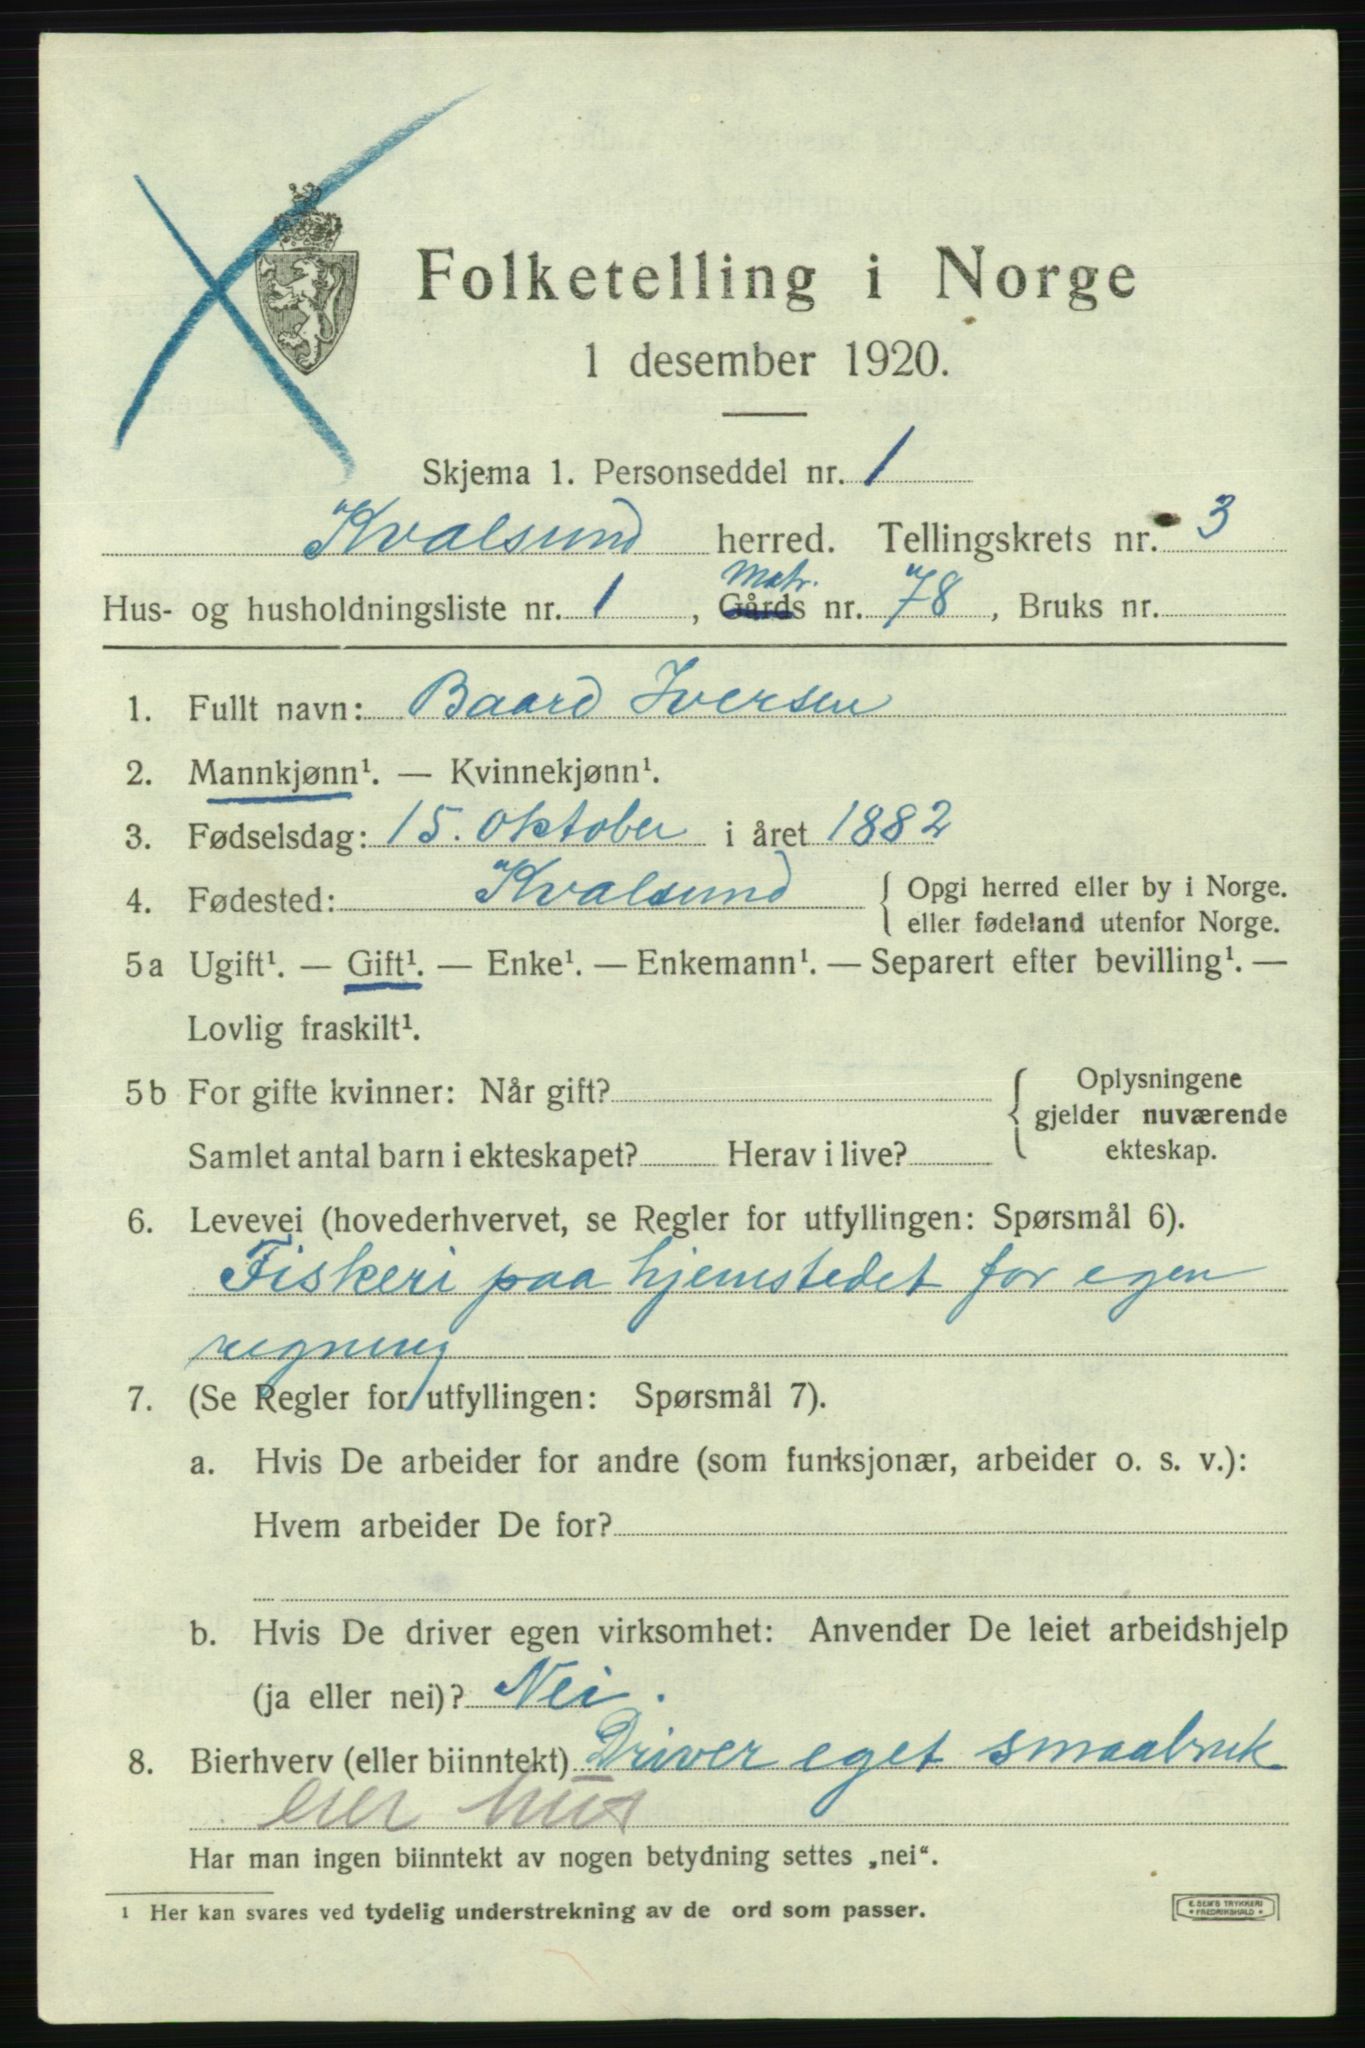 Folketelling i Norge
1 desember 1920.
Skjema 1. Personseddel nr. 1
Kvalsund herred. Tellingskrets nr. 3
Matr.
Hus- og husholdningsliste nr. 1, Gårds nr. 78, Bruks nr.
1. Fullt navn: Baard Iversen
2. Mannkjønn¹. — Kvinnekjønn¹.
3. Fødselsdag: 15. oktober i året 1882
4. Fødested: Kvalsund { Opgi herred eller by i Norge.
eller fødeland utenfor Norge.
5a Ugift¹. — Gift¹. — Enke¹. — Enkemann¹. — Separert efter bevilling¹. —
Lovlig fraskilt¹.
5b For gifte kvinner: Når gift? { Oplysningene
gjelder nuværende
Samlet antal barn i ekteskapet? Herav i live? ekteskap.
6. Levevei (hovederhvervet, se Regler for utfyllingen: Spørsmål 6).
Fiskeri paa hjemstedet for egen
regning
7. (Se Regler for utfyllingen: Spørsmål 7).
a. Hvis De arbeider for andre (som funksjonær, arbeider o. s. v.):
Hvem arbeider De for?
b. Hvis De driver egen virksomhet: Anvender De leiet arbeidshjelp
(ja eller nei)? Nei.
8. Bierhverv (eller biinntekt) Driver eget smaabruk
eier hus
Har man ingen biinntekt av nogen betydning settes „nei“.
¹ Her kan svares ved tydelig understrekning av de ord som passer.
E. SEM'S TRYKKERI
• FREDRIKSHALD •